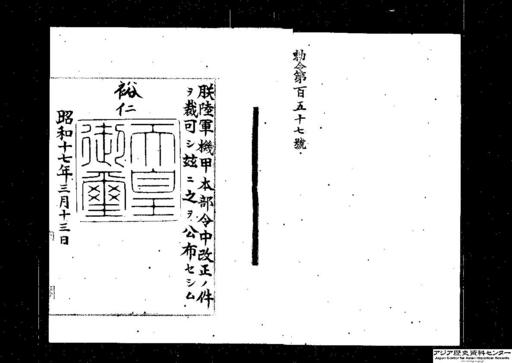 勅令第百五十七號
朕陸軍機甲本部令中改正ノ件
ヲ裁可シ玆ニ之ヲ公布セシム
裕仁
天皇
御璽
昭和十七年三月十三日
アジア歴史資料センター
Japan Center for Asian Historical Records